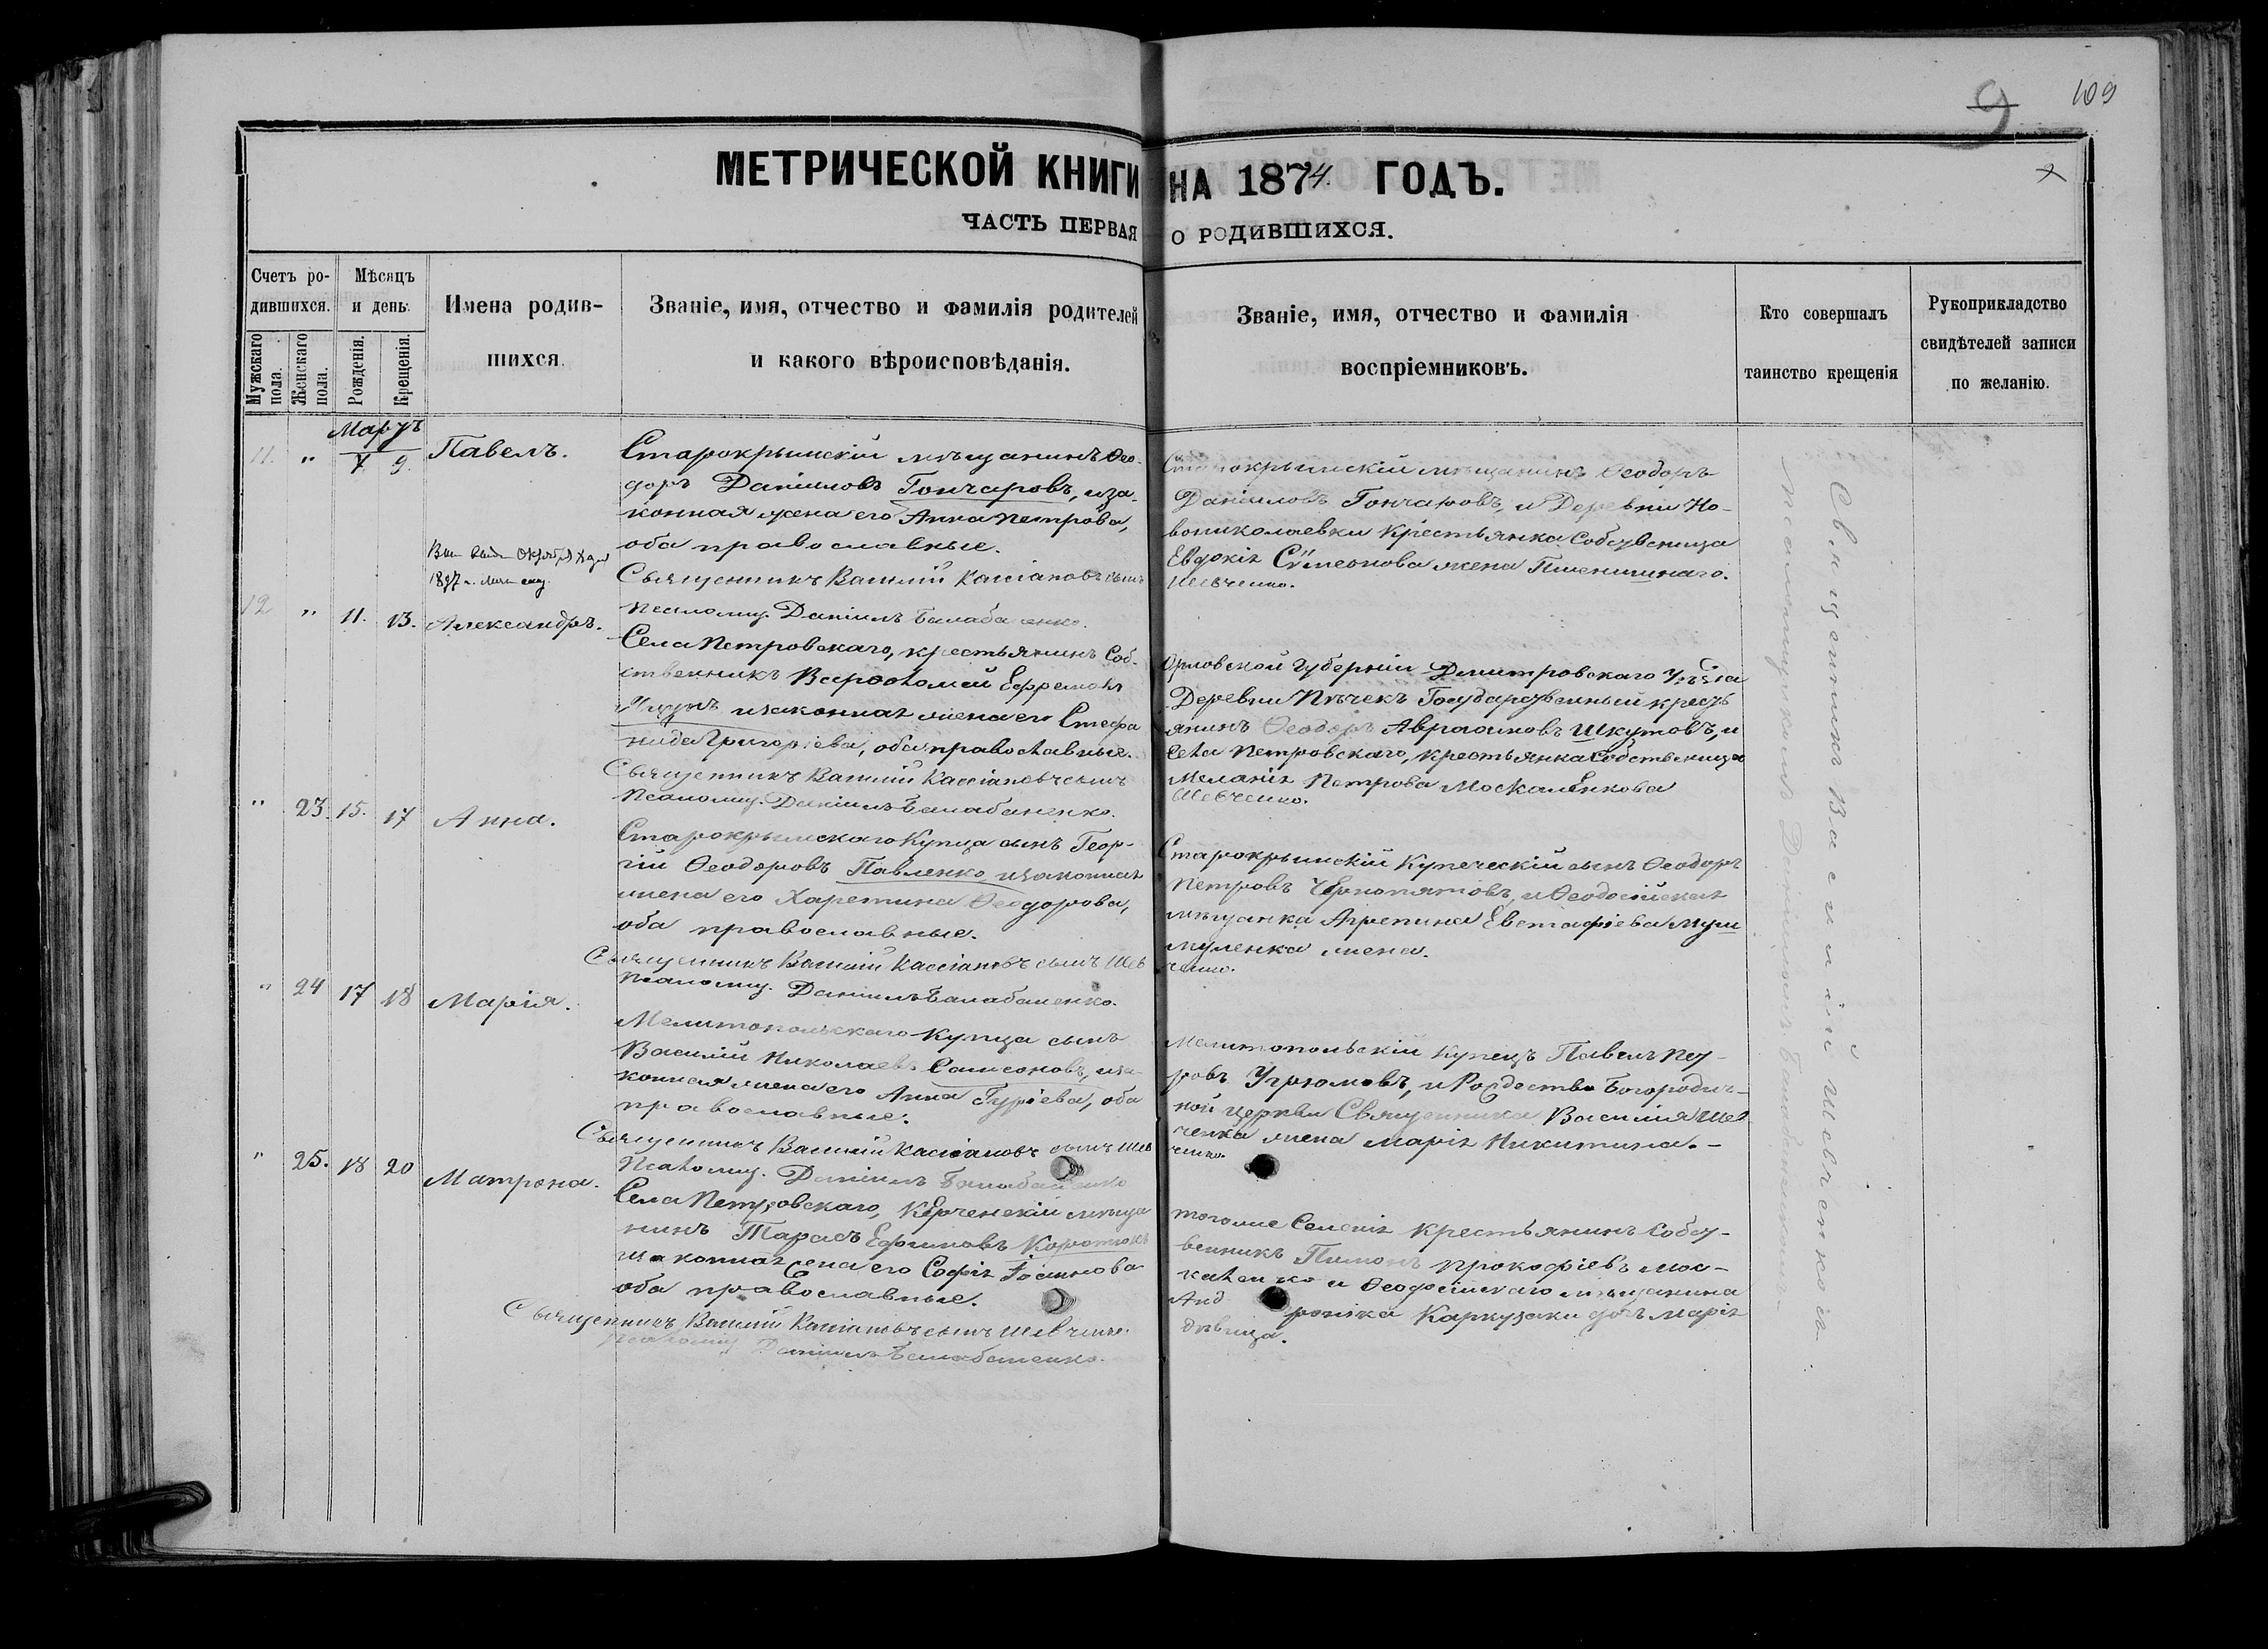 9 109
МЕТРИЧЕСКОЙ КНИГИ НА 1874. ГОДЪ.
ЧАСТЬ ПЕРВАЯ О РОДИВШИХСЯ.
Счетъ ро-
дившихся.
Мужскаго пола.
Женскаго пола.
Мѣсяцъ
и день.
Рожденія.
Крещенія.
Имена родив-
шихся.
Званіе, имя, отчество и фамилія родителей
и какого вѣроисповѣданія.
Званіе, имя, отчество и фамилія
воспріемниковъ.
Кто совершалъ
таинство крещенія
Рукоприкладство
свидѣтелей записи
по желанію.
Мартъ
11. " 7 9. Павелъ.
Старокрымскій мѣщанинъ Ѳео-
доръ Даніиловъ Гончаровъ, иза-
конная жена его Анна Петрова,
оба православные.
Священникъ Василій Кассіановъ сынъ
Псаломщ. Даніилъ Балабаненко.
Старокрымскій мѣщанинъ Ѳеодоръ
Даніиловъ Гончаровъ, и Деревни Но-
вониколаевки крестьянка Собственница
Евдокія Сѵмеонова жена Пшенишнаго.
Шевченко.
1897 г.
12 " 11. 13. Александръ.
Села Петровскаго, крестьянинъ Соб-
ственникъ Варѳоломей Ефремовъ
изаконная жена его Стефа
нида Григоріева, оба православные.
Священникъ Василій Кассіановъ сынъ
Псаломщ. Даніилъ Балабаненко.
Орловской Губерніи Дмитровскаго Уѣзда
Деревни Государственный кресть
янинъ Ѳеодоръ Авраамовъ Шкутовъ, и
Села Петровскаго, крестьянка Собственница
Меланія Петрова Москаленкова
Шевченко.
" 23. 15. 17 Анна.
Старокрымскаго Купца сынъ Геор-
гій Ѳеодоровъ Павленко изаконная
жена его Харетина Ѳеодорова,
оба православные.
Священникъ Василій Кассіановъ сынъ Шев
Псаломщ. Даніилъ Балабаненко.
Старокрымскій Купеческій сынъ Ѳеодоръ
Петровъ Чернопятовъ, и Ѳеодосійская
мѣщанка Агрепина Евстафіева
жена.
ченко.
" 24 17 18 Марія.
Мелитопольскаго Купца сынъ
Василій Николаевъ Самсоновъ, иза-
конная жена его Анна Гуріева, оба
православные.
Священникъ Василій Кассіановъ сынъ Шев
Псаломщ. Даніилъ Балабаненко
Мелитопольскій Купецъ Павелъ Пет-
ровъ Угрюмовъ, и Рождество Богородич-
ной церкви Священника Василія Шев
ченка жена Марія Никитина.-
ченко.
" 25. 18 20 Матрона.
Села Петровскаго, Керченскій мѣща
нинъ Тарасъ Ефимовъ Коротюкъ
изаконная жена его Софія Іоаннова
оба православные.
Священникъ Василій Кассіановъ сынъ Шевченко.
Псаломщ Даніилъ Балабаненко.
тогоже Селенія крестьянинъ Собст-
венникъ Пимонъ Прокофіевъ Мос-
каленко и Ѳеодосійскаго мѣщанина
Анд роніка Каркузаки дочь Марія
дѣвица.
Священникъ Василій Шевченко съ
псаломщикомъ Даніиломъ Балабаненкомъ.